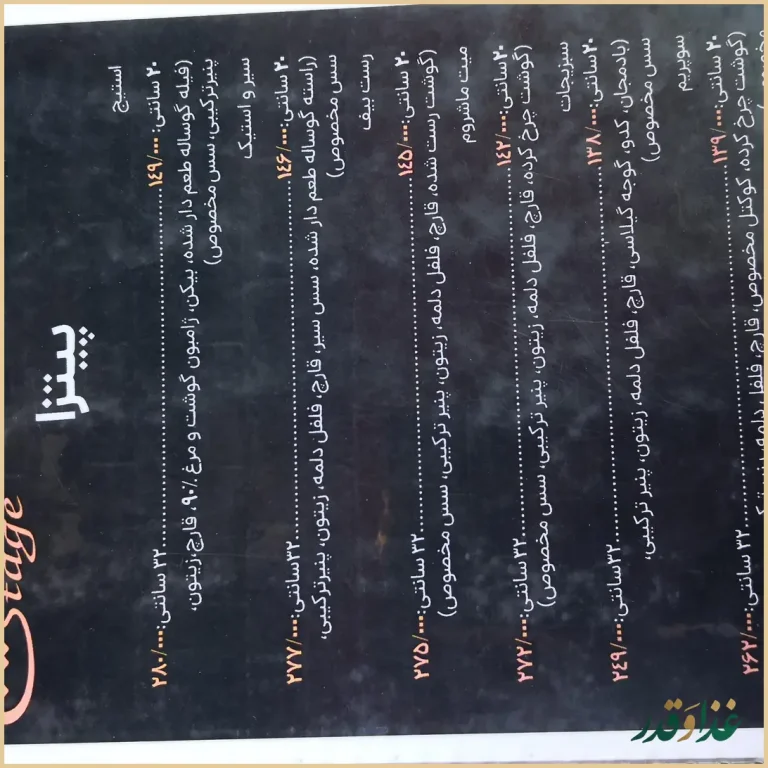 Stage
پیتزا
استیج
۲۰ سانتی: ۱۴۹/۰۰۰ ........ ۳۲ سانتی: ۲۸۰/۰۰۰
(فیله گوساله طعم دار شده، بیکن، ژامبون گوشت و مرغ ۹۰٪، قارچ، زیتون،
پنیرترکیبی، سس مخصوص)
سیر و استیک
۲۰ سانتی: ۱۴۶/۰۰۰ ........ ۳۲ سانتی: ۲۷۷/۰۰۰
(راسته گوساله طعم دار شده، سس سیر، قارچ، فلفل دلمه، زیتون، پنیرترکیبی،
سس مخصوص)
رست بیف
۲۰ سانتی: ۱۴۵/۰۰۰ ........ ۳۲ سانتی: ۲۷۵/۰۰۰
(گوشت رست شده، قارچ، فلفل دلمه، زیتون، پنیر ترکیبی، سس مخصوص)
میت ماشروم
۲۰ سانتی: ۱۴۲/۰۰۰ ........ ۳۲ سانتی: ۲۷۲/۰۰۰
(گوشت چرخ کرده، قارچ، فلفل دلمه، زیتون، پنیر ترکیبی، سس مخصوص)
سبزیجات
۲۰ سانتی: ۱۳۸/۰۰۰ ........ ۳۲ سانتی: ۲۴۹/۰۰۰
(بادمجان، کدو، گوجه گیلاسی، قارچ، فلفل دلمه، زیتون، پنیر ترکیبی،
سس مخصوص)
سوپریم
۲۰ سانتی: ۱۳۹/۰۰۰ ........ ۳۲ سانتی: ۲۶۲/۰۰۰
(گوشت چرخ کرده، کوکتل مخصوص، قارچ، فلفل دلمه،
غذا و قدر